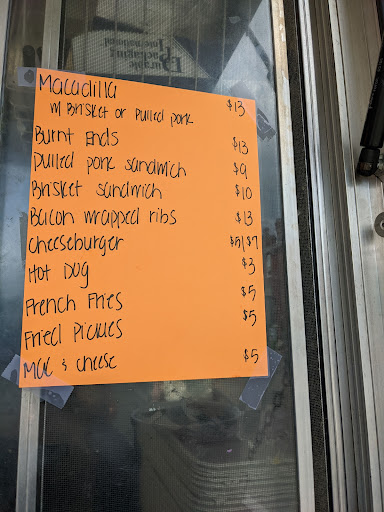 Durable
Packaging
International
Macadilla
w Brisket or Pulled pork $13
Burnt Ends $13
Pulled pork sandwich $9
Brisket sandwich $10
Bacon wrapped ribs $13
Cheeseburger $5/$7
Hot Dog $3
French Fries $5
Fried Pickles $5
Mac & Cheese $5